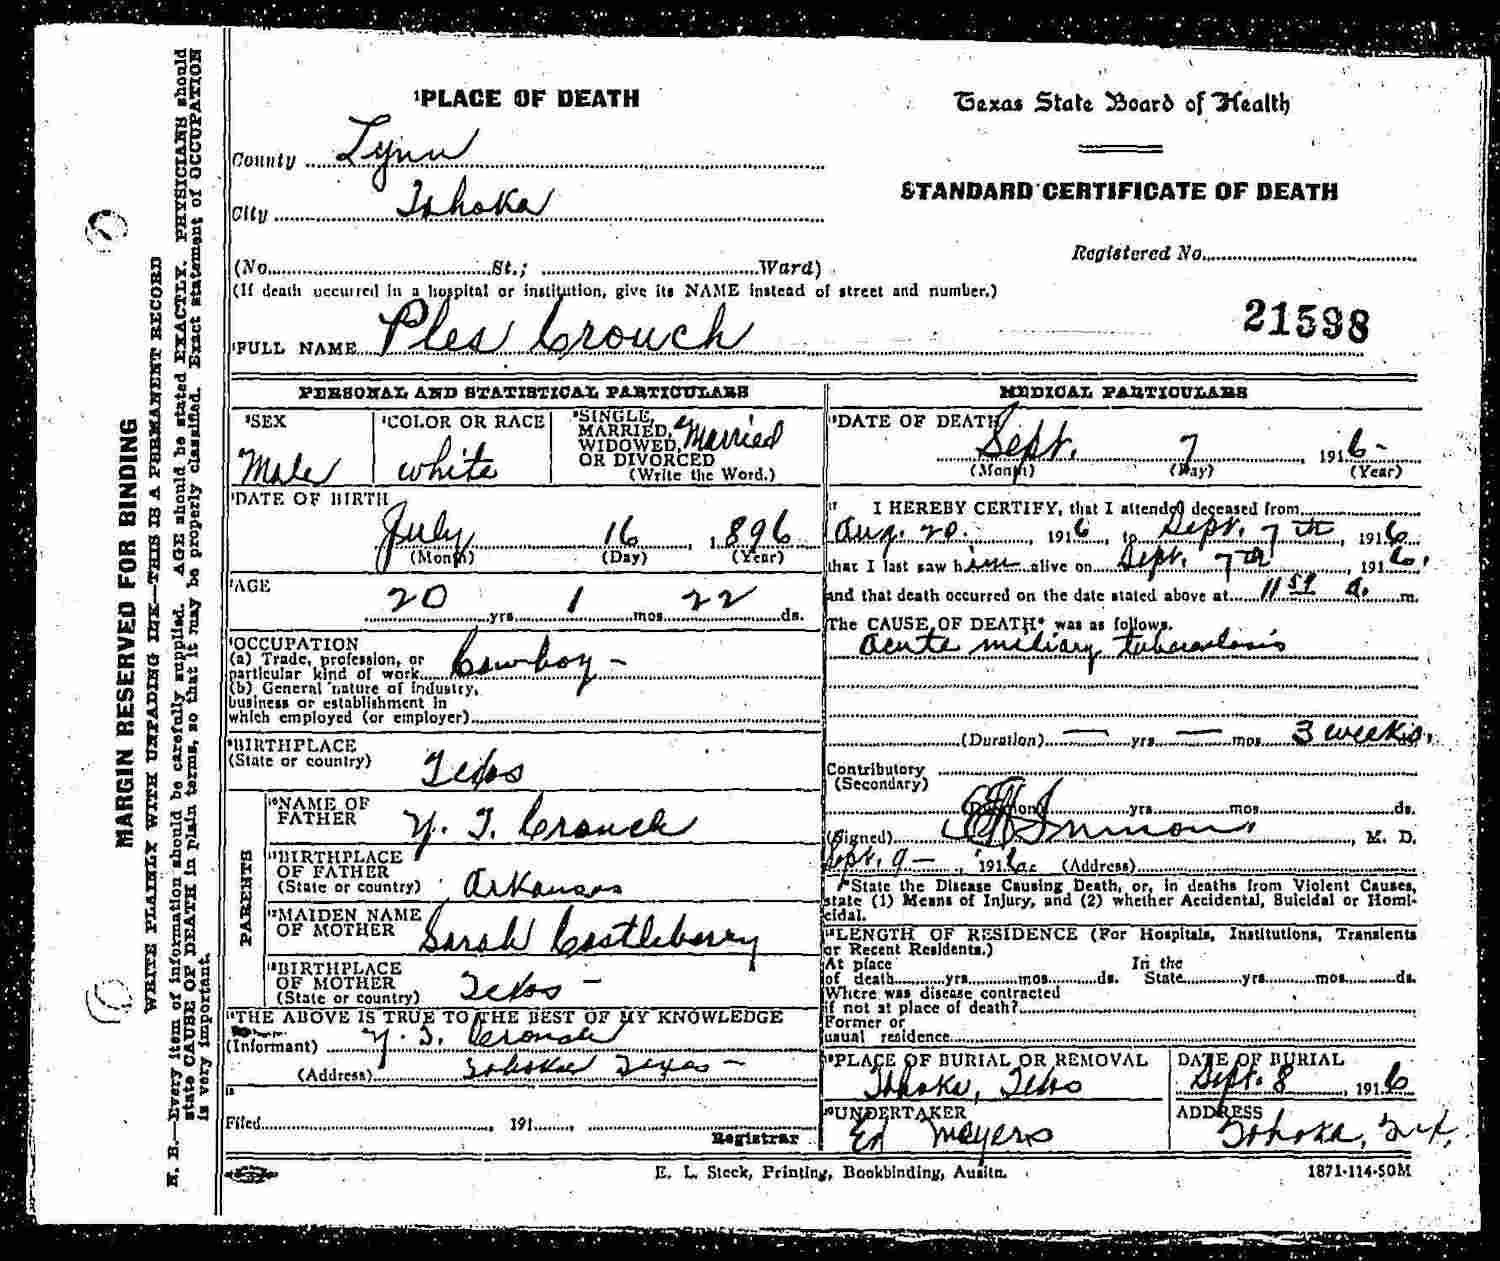 MARGIN RESERVED FOR BINDING
WRITE PLAINLY WITH UNFADING INK—THIS IS A PERMANENT RECORD
N. B.—Every item of information should be carefully supplied. AGE should be stated EXACTLY. PHYSICIANS should
state CAUSE OF DEATH in plain terms, so that it may be properly classified. Exact statement of OCCUPATION
is very important.
1PLACE OF DEATH
County Lynn
City Tahoka
(No. St.; Ward)
(If death occurred in a hospital or institution, give its NAME instead of street and number.)
Texas State Board of Health
STANDARD CERTIFICATE OF DEATH
Registered No.
21598
FULL NAME Ples Crouch
PERSONAL AND STATISTICAL PARTICULARS
SEX
Male
COLOR OR RACE
white
SINGLE, MARRIED, WIDOWED, OR DIVORCED
Married
(Write the Word.)
DATE OF BIRTH
July 16, 1896
(Month) (Day) (Year)
AGE
20 yrs. 1 mos. 22 ds.
OCCUPATION
(a) Trade, profession, or
particular kind of work Cowboy -
(b) General nature of industry,
business or establishment in
which employed (or employer)
BIRTHPLACE
(State or country) Texas
PARENTS
10NAME OF
FATHER Y. T. Crouch
11BIRTHPLACE
OF FATHER
(State or country) Arkansas
12MAIDEN NAME
OF MOTHER Sarah Castleberry
13BIRTHPLACE
OF MOTHER
(State or country) Texas -
14THE ABOVE IS TRUE TO THE BEST OF MY KNOWLEDGE
(Informant) Y. T. Crouch
(Address) Tahoka Texas -
15
Filed , 191 ,
Registrar
MEDICAL PARTICULARS
DATE OF DEATH
Sept. 7, 1916-
(Month) (Day) (Year)
17 I HEREBY CERTIFY, that I attended deceased from
Aug. 20. , 1916, to Sept. 7th, 1916,
that I last saw him alive on Sept. 7th, 1916,
and that death occurred on the date stated above at 11 59 a. m.
The CAUSE OF DEATH* was as follows.
acute miliary tuberculosis
(Duration) — yrs — mos 3 weeks.
Contributory
(Secondary)
(Duration) yrs mos ds.
(Signed) Inmon, M. D.
Sept. 9 - , 1916. (Address)
*State the Disease Causing Death, or, in deaths from Violent Causes,
state (1) Means of Injury, and (2) whether Accidental, Suicidal or Homi-
cidal.
LENGTH OF RESIDENCE (For Hospitals, Institutions, Transients
or Recent Residents.)
At place In the
of death yrs mos ds. State yrs mos ds.
Where was disease contracted
if not at place of death?
Former or
usual residence
PLACE OF BURIAL OR REMOVAL
Tahoka, Texas
DATE OF BURIAL
Sept. 8, 1916
UNDERTAKER
Ed Meyers
ADDRESS
Tahoka, Tex.
E. L. Steck, Printing, Bookbinding, Austin.
1871-114-50M